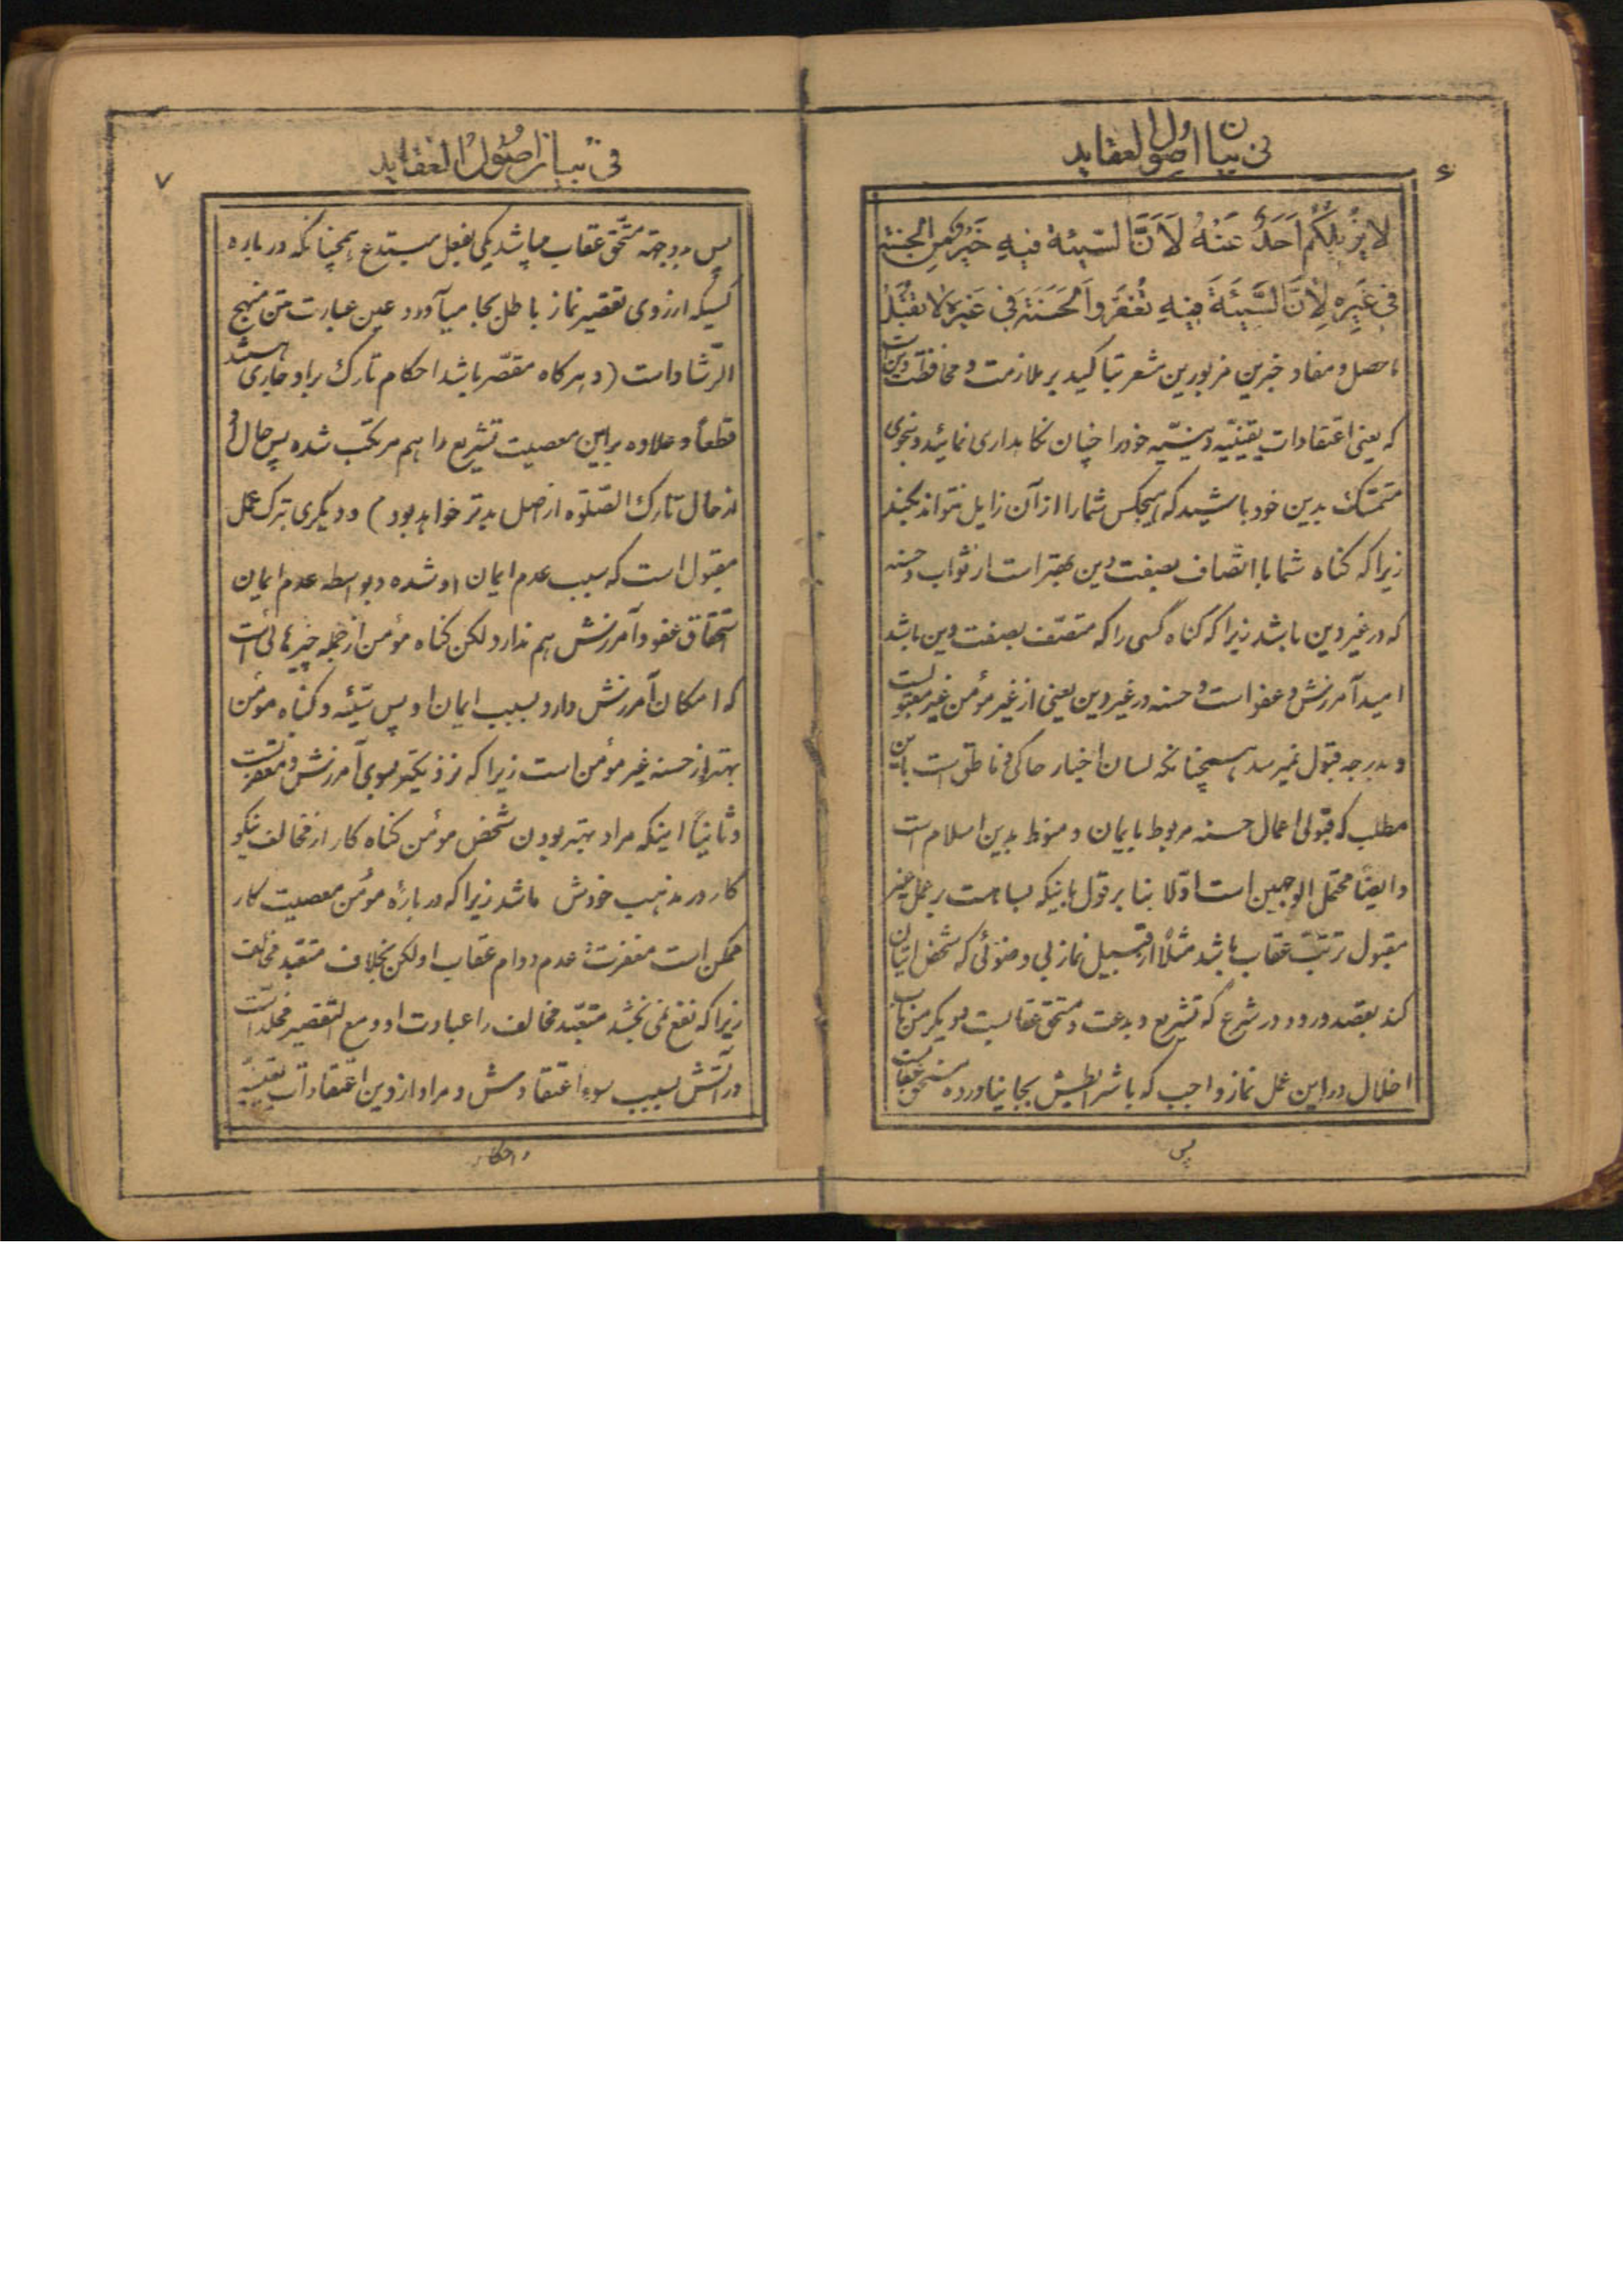 ۶
فی بیان اصول العقاید
لا یزیلکم اَحَدٌ عَنْهُ لَاَنَّ السّیئة فیهِ خَیْرٌ مِنَ الحسنة
فی غَیْرِهِ لِاَنَّ السَّیِّئَةَ فیهِ تُغْفَرُ وَالْحَسَنَةَ فی غَیْرِهِ لا تُقْبَلُ
ماحصل و مفاد خبرین مزبورین مشعر بتاکید بر ملازمت و محافظت دین است
که یعنی اعتقادات یقینیّه دینیّه خود را چنان نگاهداری نمائید و بنحوی
متمسّک بدین خود باشید که هیچکس شما را از آن زایل نتواند بکند
زیرا که گناه شما با اتّصاف بصفت دین بهتر است از ثواب و حسنه
که در غیر دین باشد زیرا که گناه کسی را که متصّف بصفت دین باشد
امید آمرزش و عفو است و حسنه در غیر دین یعنی از غیر مؤمن غیر مقبولست
و بدرجه قبول نمیرسد همچنانکه لسان اخبار حاکی و ناطق است باین
مطلب که قبولی اعمال حسنه مربوط بایمان و منوط بدین اسلام است
و ایضاً محتمل الوجهین است اوّلا بنا بر قول باینکه بسا هست بر عمل غیر
مقبول ترتّب عقاب باشد مثلاً از قبیل نماز بی وضوئی که شخص اتیان
کند بقصد ورود در شرع که تشریع و بدعت و مستحق عقابست و دیگر من باب
اخلال در این عمل نماز واجب که با شرایطش بجا نیاورده مستحق عقابست
پس
۷
فی بیان اصول العقاید
پس بدو جهة مستحّق عقاب میباشد یکی بفعل مبتدع همچنانکه درباره
کسیکه از روی تقصیر نماز باطل بجا میآورد عین عبارت متن منهج
الرّشاد است (و هر گاه مقصّر باشد احکام تارک بر او جاری هست
قطعاً و علاوه بر این معصیت تشریع را هم مرتکب شده پس حال او
از حال تارک الصّلوة از اصل بدتر خواهد بود) و دیگری بترک عمل
مقبول است که سبب عدم ایمان او شده و بواسطه عدم ایمان
استحقاق عفو و آمرزش هم ندارد لکن گناه مؤمن از جمله چیزهائی است
که امکان آمرزش دارد بسبب ایمان او پس سیّئه و گناه مؤمن
بهتر از حسنه غیر مؤمن است زیرا که نزدیکتر بسوی آمرزش و مغفرتست
و ثانیاً اینکه مراد بهتر بودن شخص مؤمن گناه کار از مخالف نیکو
کار در مذهب خودش باشد زیرا که در بارهٔ مؤمن معصیت کار
ممکن است مغفرت عدم دوام عقاب او لکن بخلاف متعبّد مخالف
زیرا که نفع نمی بخشد متعبّد مخالف را عبادت او و مع التقصیر مخلّد است
در آتش بسبب سوء اعتقادش و مراد از دین اعتقادات یقینیّه
و احکام